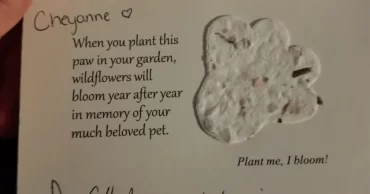 Cheyanne ♡
When you plant this
paw in your garden,
wildflowers will
bloom year after year
in memory of your
much beloved pet.
Plant me, I bloom!